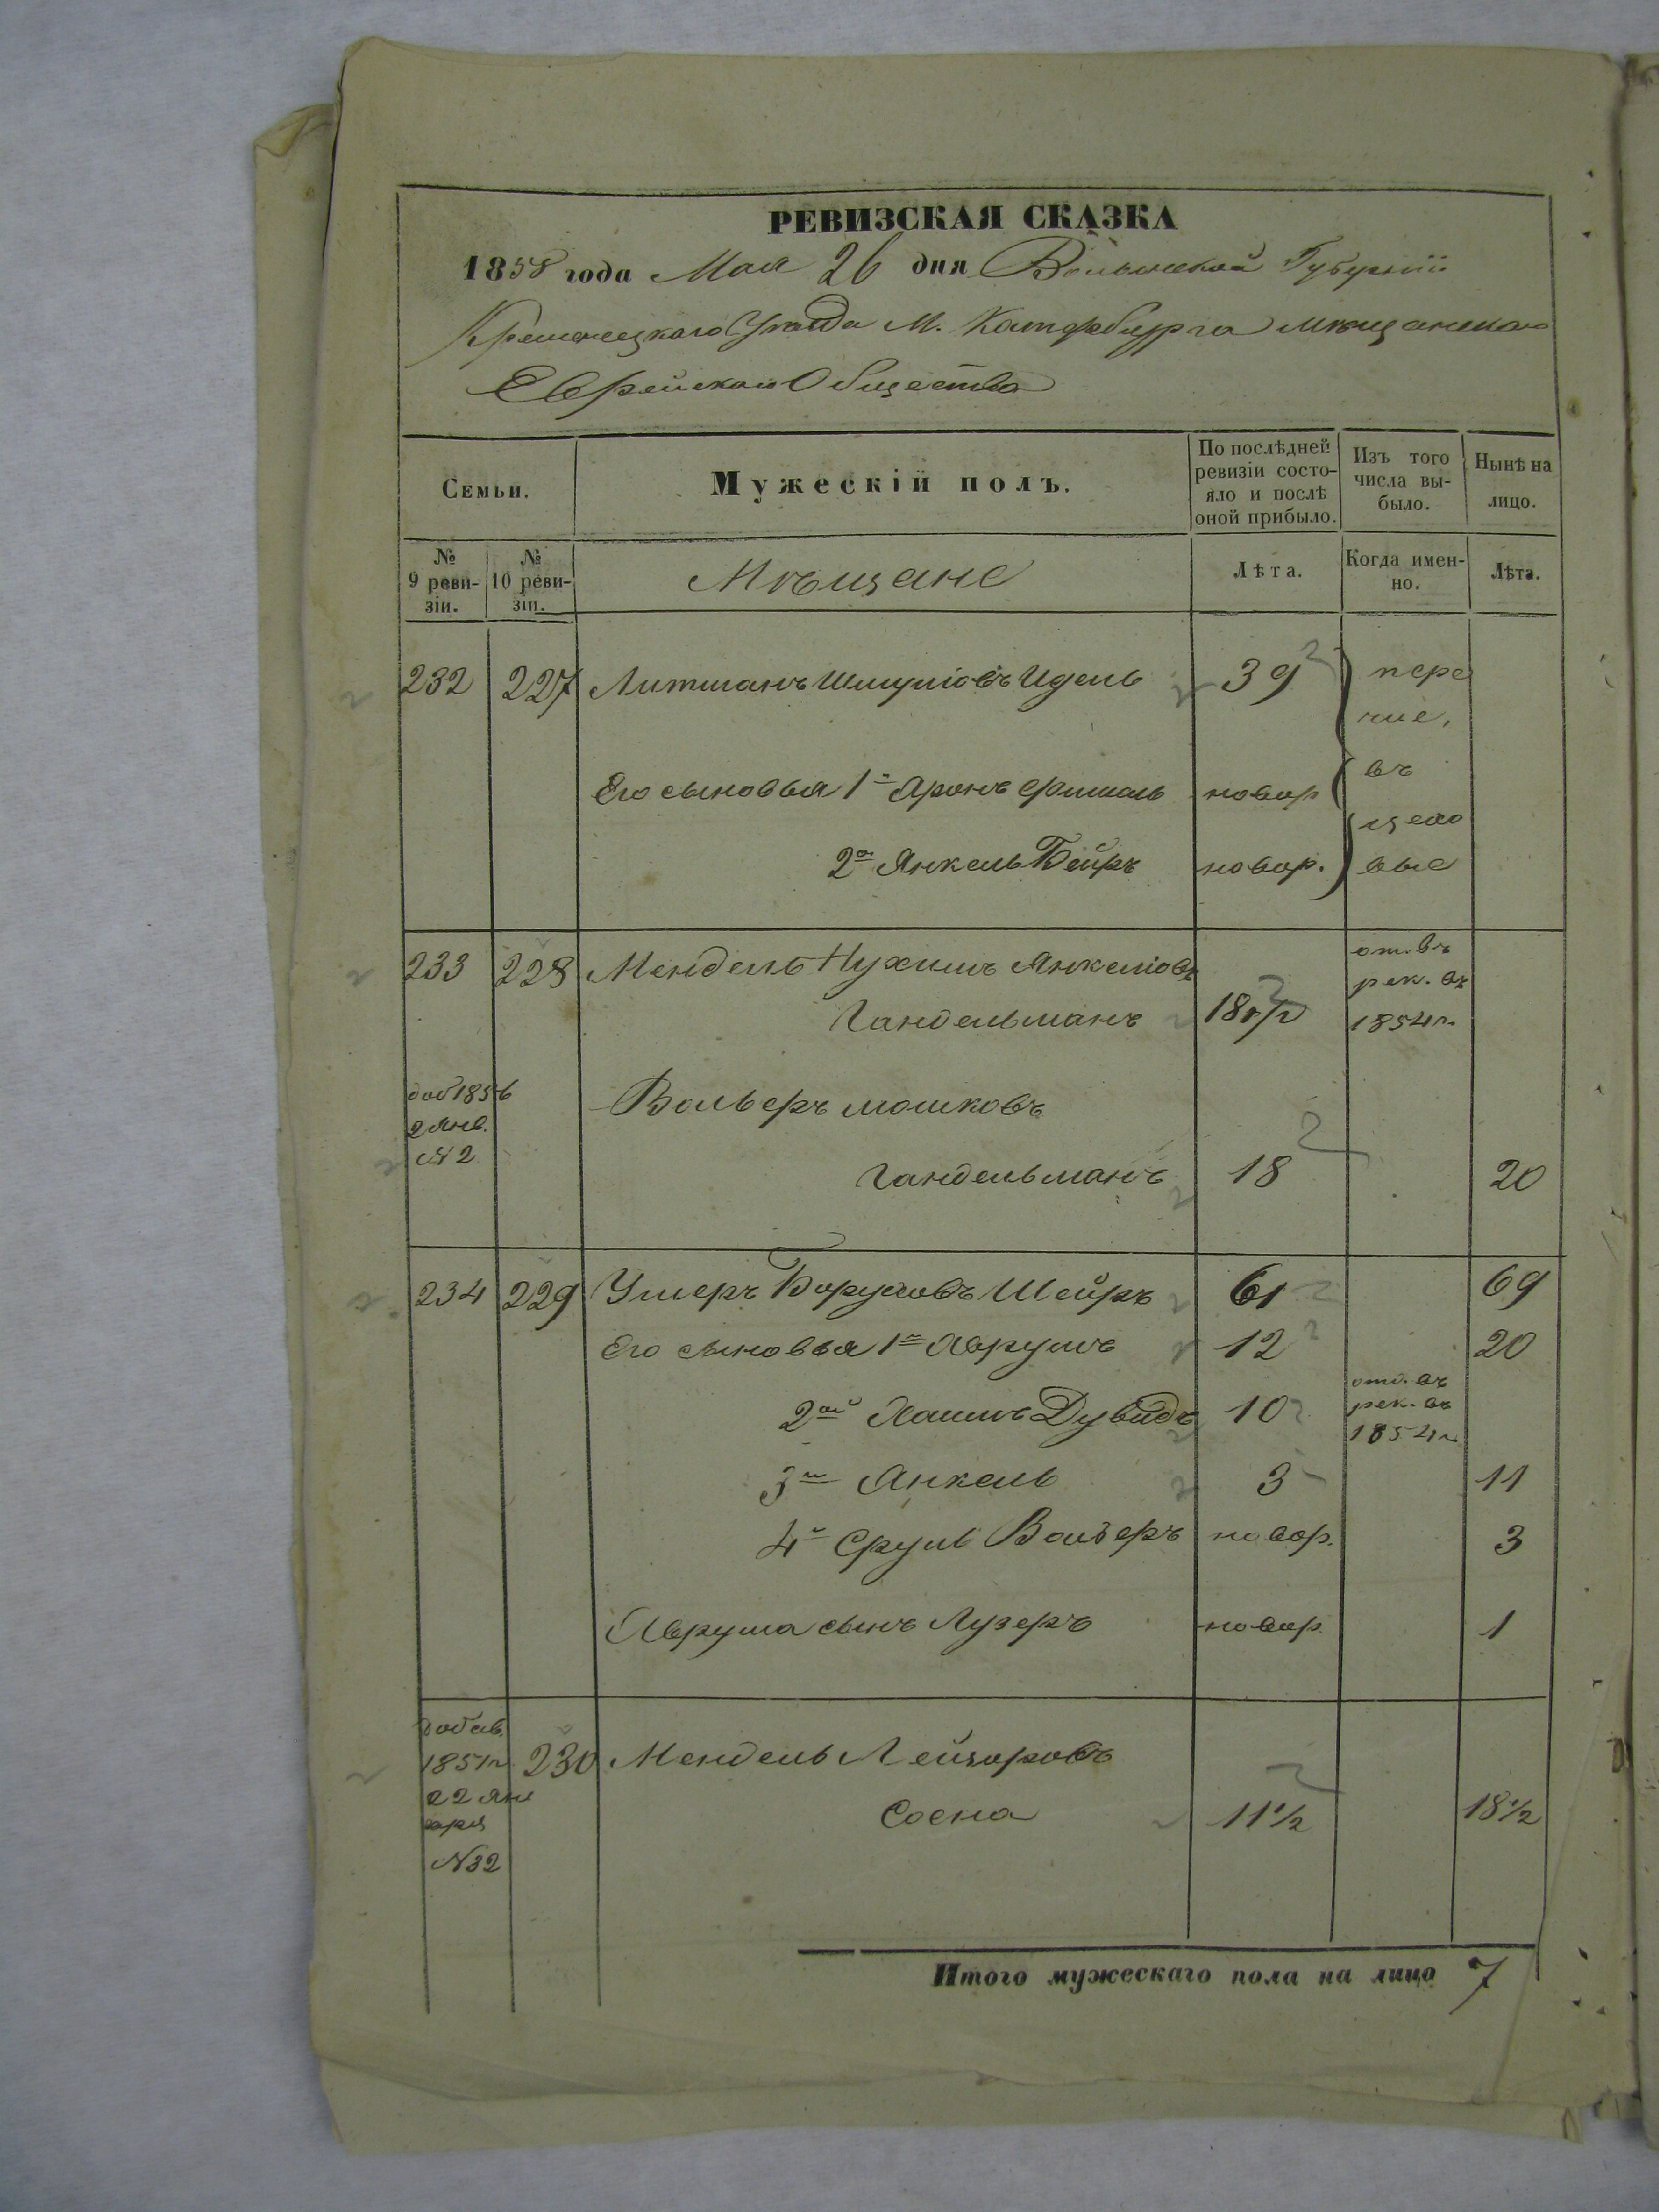 РЕВИЗСКАЯ СКАЗКА
1858 года Мая 26 дня Волынской Губерніи
Кременецкаго Уѣзда М. Катербурга мѣщанскаго
Еврейскаго Общества
Семьи. Мужескій полъ. По послѣдней ревизіи состояло и послѣ оной прибыло. Изъ того числа выбыло. Нынѣ на лицо.
№ 9 ревизіи. № 10 ревизіи. Мѣщане Лѣта. Когда именно. Лѣта.
232 227 Литманъ Шмуліовъ Идель 39 пере
чис.
Его сыновья 1й Аронъ новор въ
цехо
2й Янкель Бейръ новор. вые
233 228 Мендель Нухимъ Янкеліовъ от. въ
рек. въ
Гандельманъ 18½ 1854г
доб 1856
2 Янв.
№2
Вольверъ Мошковъ
Гандельманъ 18 20
234 229 Ушеръ Боруховъ Шейръ 61 69
Его сыновья 1й Аврумъ 12 20
2ой Хаимъ Дувидъ 10 отд. въ
рек. въ
1854г
3й Янкель 3 11
4й Сруль Вольверъ новор. 3
Аврума сынъ Лузеръ новор 1
добав.
1851г 230 Мендель Лейзоровъ
22 Ян
варя
Сосна 11½ 18½
№32
Итого мужескаго пола на лицо 7